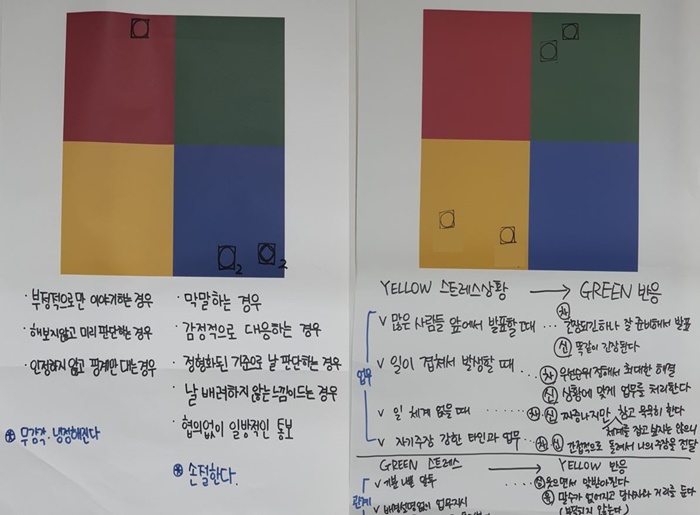 2
2
· 부정적으로만 이야기하는 경우
· 해보지않고 미리 판단하는 경우
· 인정하지 않고 핑계만 대는 경우
※ 무감각·냉정해진다
· 막말하는 경우
· 감정적으로 대응하는 경우
· 정형화된 기준으로 날 판단하는 경우
· 날 배려하지 않는 느낌이드는 경우
· 협의없이 일방적인 통보
※ 손절한다.
YELLOW 스트레스상황 → GREEN 반응
업무
v 많은 사람들 앞에서 발표할 때 ... 차 긴장되긴하나 잘 준비해서 발표
신 똑같이 긴장된다
v 일이 겹쳐서 발생할 때 ... 차 우선순위 정해서 최대한 해결
신 상황에 맞게 업무를 처리한다
v 일 체계 없을 때 ... 차 신 짜증나지만 참고 묵묵히 한다
체계를 잡고 날치는 않으니
v 자기주장 강한 타인과 업무 차 신 간접적으로 돌려서 나의 주장을 전달
GREEN 스트레스 → YELLOW 반응
관계
v 기분 나쁜 말투 ... 웃으면서 맞받아친다
v 배경설명없이 업무지시 말수가 없어지고 당사자와 거리를 둔다